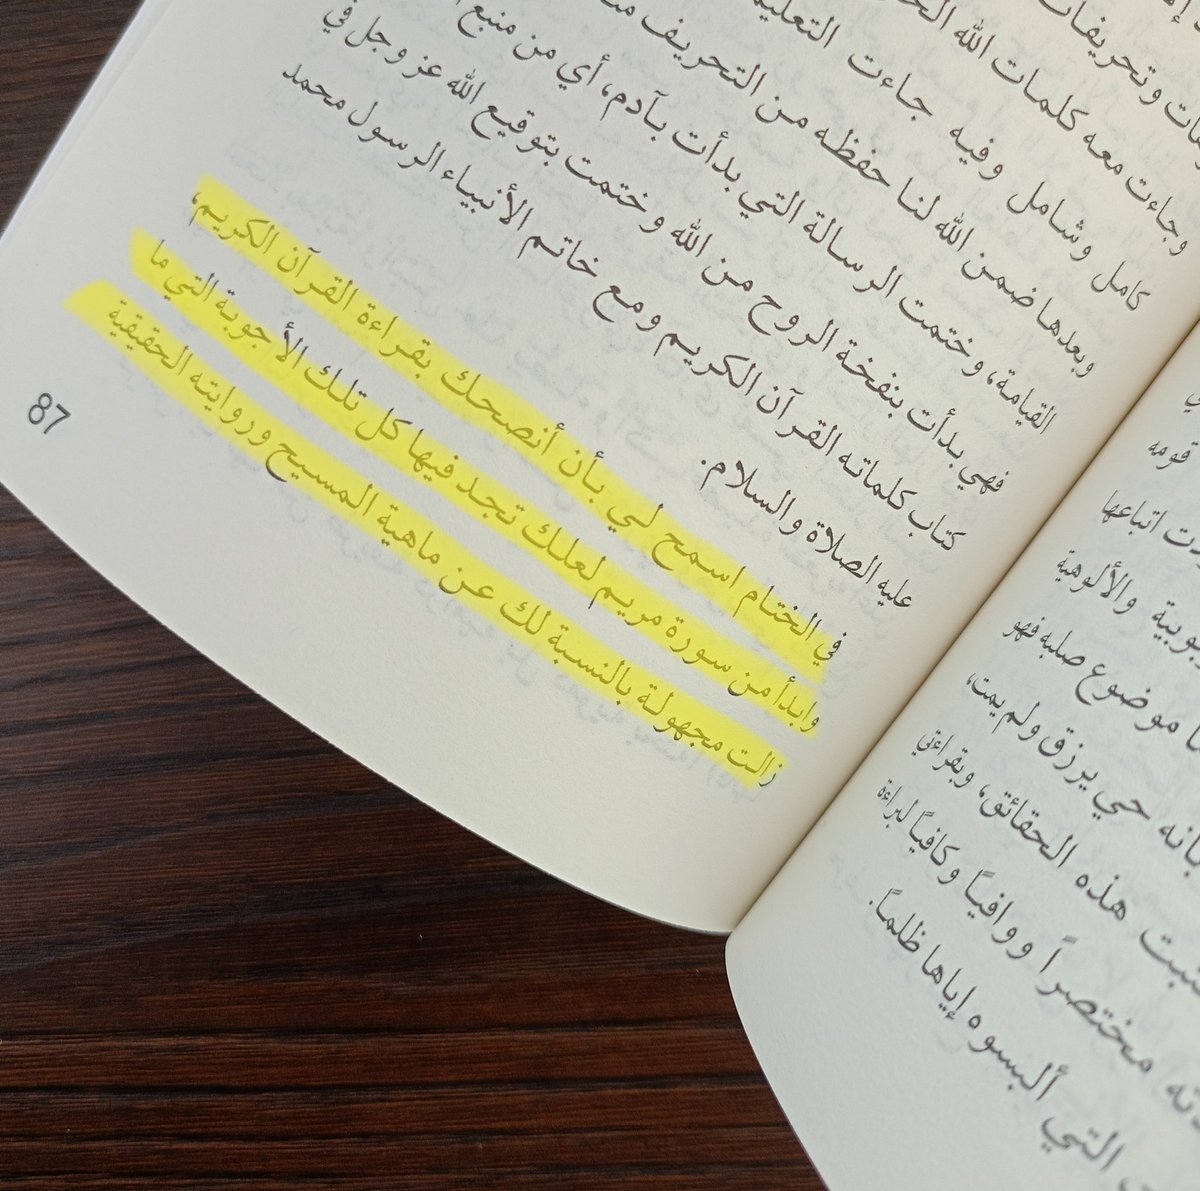 وتحريفات
وجاءت معه كلمات الله
كامل وشامل وفيه جاءت
وبعدها ضمن الله لنا حفظه من التحريف
القيامة، وختمت الرسالة التي بدأت بآدم، أي من منبع
فهي بدأت بنفخة الروح من الله وختمت بتوقيع الله عز وجل في
كتاب كلماته القرآن الكريم ومع خاتم الأنبياء الرسول محمد
عليه الصلاة والسلام.
في الختام اسمح لي بأن أنصحك بقراءة القرآن الكريم،
وابدأ من سورة مريم لعلك تجد فيها كل تلك الأجوبة التي ما
زالت مجهولة بالنسبة لك عن ماهية المسيح وروايته الحقيقية
87
قومه
اتباعها
والألوهية
موضوع صلبه فهو
بانه حي يرزق ولم يمت،
هذه الحقائق، وبقراءتي
مختصراً ووافيًا وكافيًا لبراءة
التي ألبسوه إياها ظلمًا.